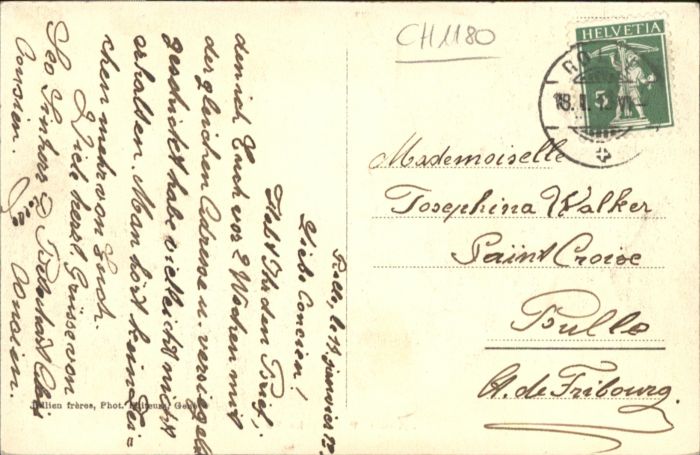 CH1180
HELVETIA
5
18. I. 12
Mademoiselle
Josephina Walker
Saint Croise
Bulle
Ct. de Fribourg.
Rolle, le 17 janvier 12.
Liebe Cousien!
Habt Ihr den Brief,
den ich Euch vor 2 Wochen mit
der gleichen Adresse u. versiegelt
geschickt habe vielleicht nicht
erhalten. Man hört kein Zei=
chen mehr von Euch.
Dich herzl. Grüsse von
Cousien.
Jullien frères, Phot. Editeurs, Genève